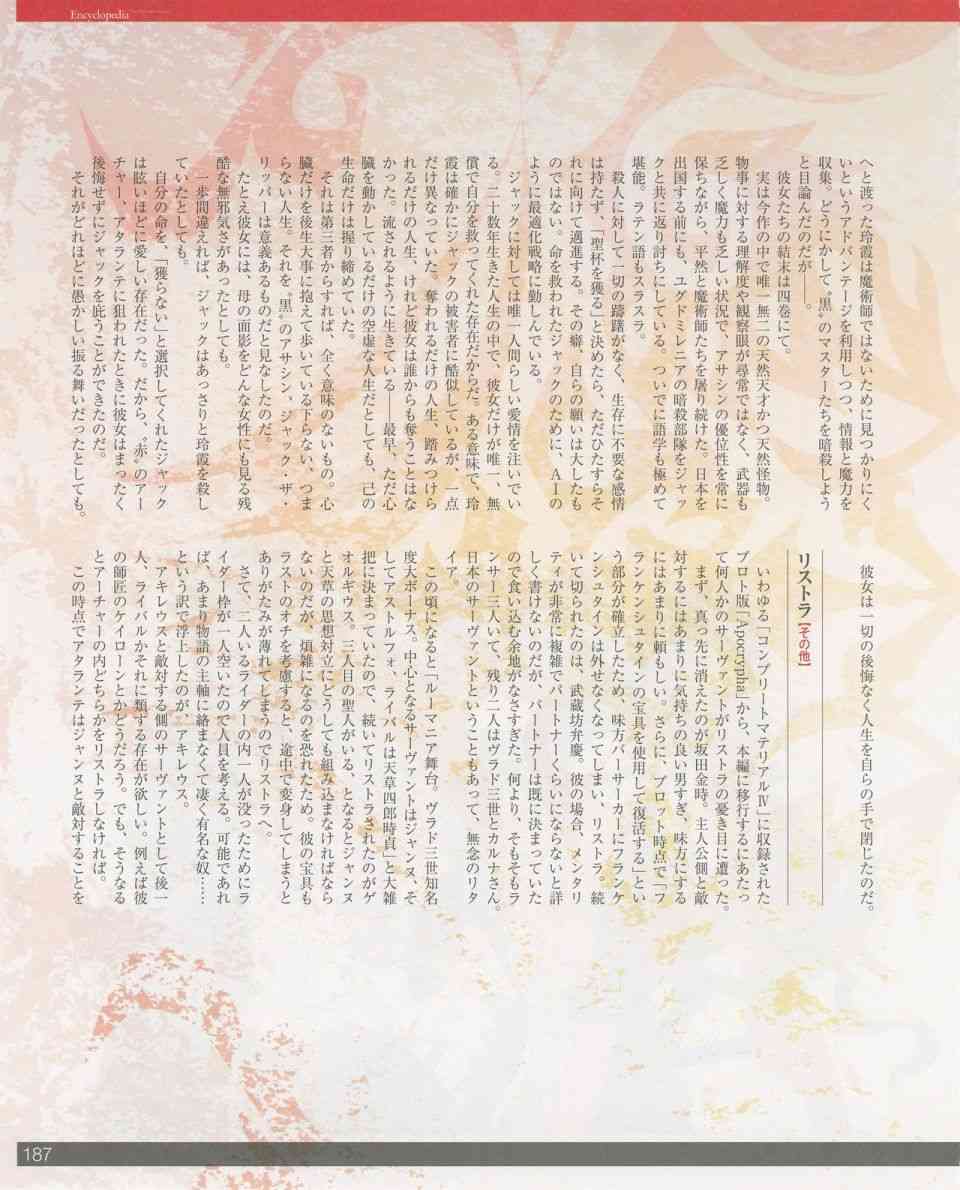 Encyclopedia
へと渡った玲霞は魔術師ではないために見つかりにく
いというアドバンテージを利用しつつ、情報と魔力を
収集。どうにかして〝黒〟のマスターたちを暗殺しよう
と目論んだのだが――。
彼女たちの結末は四巻にて。
実は今作の中で唯一無二の天然天才かつ天然怪物。
物事に対する理解度や観察眼が尋常ではなく、武器も
乏しく魔力も乏しい状況で、アサシンの優位性を常に
保ちながら、平然と魔術師たちを屠り続けた。日本を
出国する前にも、ユグドミレニアの暗殺部隊をジャッ
クと共に返り討ちにしている。ついでに語学も極めて
堪能。ラテン語もスラスラ。
殺人に対して一切の躊躇がなく、生存に不要な感情
は持たず、「聖杯を獲る」と決めたら、ただひたすらそ
れに向けて邁進する。その癖、自らの願いは大したも
のではない。命を救われたジャックのために、AIの
ように最適化戦略に勤しんでいる。
ジャックに対しては唯一人間らしい愛情を注いでい
る。二十数年生きた人生の中で、彼女だけが唯一、無
償で自分を救ってくれた存在だからだ。ある意味で、玲
霞は確かにジャックの被害者に酷似しているが、一点
だけ異なっていた。奪われるだけの人生、踏みつけら
れるだけの人生、けれど彼女は誰からも奪うことはな
かった。流されるように生きている――最早、ただ心
臓を動かしているだけの空虚な人生だとしても、己の
生命だけは握り締めていた。
それは第三者からすれば、全く意味のないもの。心
臓だけを後生大事に抱えて歩いている下らない、つま
らない人生。それを〝黒〟のアサシン、ジャック・ザ・
リッパーは意義あるものだと見なしたのだ。
たとえ彼女には、母の面影をどんな女性にも見る残
酷な無邪気さがあったとしても。
一歩間違えれば、ジャックはあっさりと玲霞を殺し
ていたとしても。
自分の命を、「獲らない」と選択してくれたジャック
は眩いほどに愛しい存在だった。だから、〝赤〟のアー
チャー、アタランテに狙われたときに彼女はまったく
後悔せずにジャックを庇うことができたのだ。
それがどれほどに愚かしい振る舞いだったとしても。
彼女は一切の後悔なく人生を自らの手で閉じたのだ。
リストラ【その他】
いわゆる「コンプリートマテリアルⅣ」に収録された
プロト版「Apocrypha」から、本編に移行するにあたっ
て何人かのサーヴァントがリストラの憂き目に遭った。
まず、真っ先に消えたのが坂田金時。主人公側と敵
対するにはあまりに気持ちの良い男すぎ、味方にする
にはあまりに頼もしい。さらに、プロット時点で「フ
ランケンシュタインの宝具を使用して復活する」とい
う部分が確立したため、味方バーサーカーにフランケ
ンシュタインは外せなくなってしまい、リストラ。続
いて切られたのは、武蔵坊弁慶。彼の場合、メンタリ
ティが非常に複雑でパートナーくらいにならないと詳
しく書けないのだが、パートナーは既に決まっていた
ので食い込む余地がなさすぎた。何より、そもそもラ
ンサー三人いて、残り二人はヴラド三世とカルナさん。
日本のサーヴァントということもあって、無念のリタ
イア。
この頃になると「ルーマニア舞台。ヴラド三世知名
度大ボーナス。中心となるサーヴァントはジャンヌ、そ
してアストルフォ、ライバルは天草四郎時貞」と大雑
把に決まっていたので、続いてリストラされたのがゲ
オルギウス。三人目の聖人がいる、となるとジャンヌ
と天草の思想対立にどうしても組み込まなければなら
ないのだが、煩雑になるのを恐れたため。彼の宝具も
ラストのオチを考慮すると、途中で変身してしまうと
ありがたみが薄れてしまうのでリストラへ。
さて、二人いるライダーの内一人が没ったためにラ
イダー枠が一人空いたので人員を考える。可能であれ
ば、あまり物語の主軸に絡まなくて凄く有名な奴……
という訳で浮上したのが、アキレウス。
アキレウスと敵対する側のサーヴァントとして後一
人、ライバルかそれに類する存在が欲しい。例えば彼
の師匠のケイローンとかどうだろう。でも、そうなる
とアーチャーの内どちらかをリストラしなければ。
この時点でアタランテはジャンヌと敵対することを
187